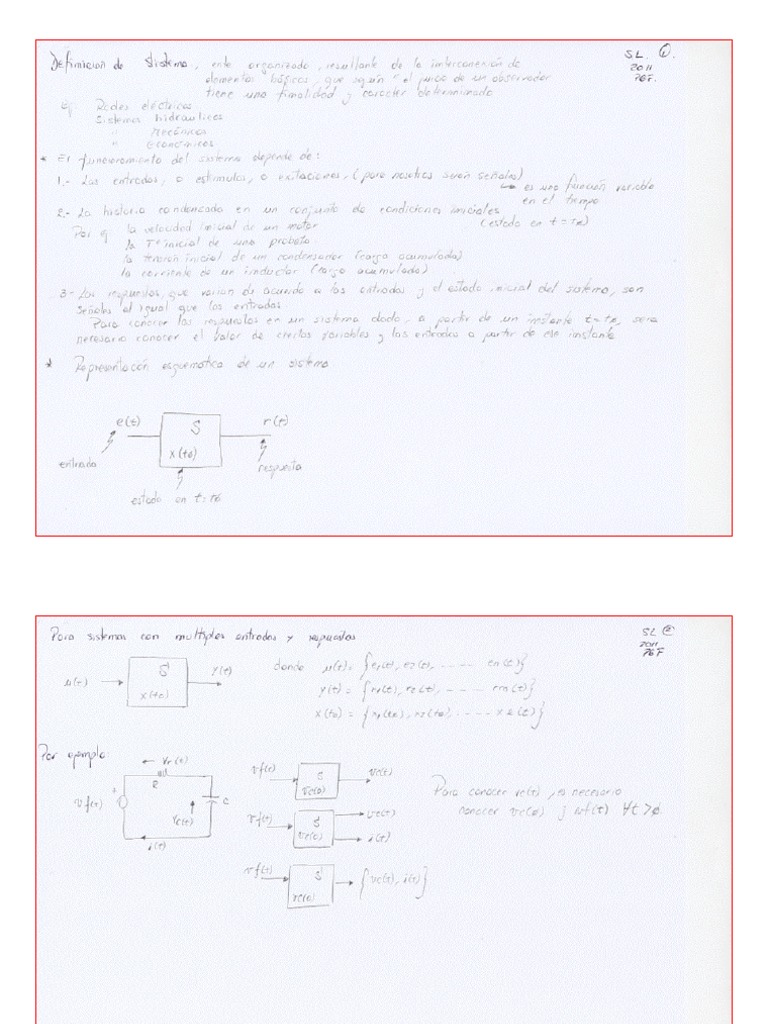 Definicion de Sistema, ente organizado, resultante de la interconexión de
elementos básicos, que según el juicio de un observador
tiene una finalidad y caracter determinado
SL. 1.
2011
PGF.
ej: Redes eléctricas.
Sistemas hidraulicos
" Mecánicos
" Económicos
* El funcionamiento del sistema depende de:
1.- Las entradas, o estimulos, o exitaciones, (para nosotros serán señales)
↳ es una función variable
en el tiempo
2.- La historia condensada en un conjunto de condiciones iniciales
(estado en t=to)
Por ej la velocidad inicial de un motor
la Tº inicial de una probeta.
la tensión inicial de un condensador (carga acumulada)
la corriente de un inductor (carga acumulada)
3.- Las respuestas, que varian de acuerdo a las entradas y el estado inicial del sistema, son
señales al igual que las entradas.
Para conocer las respuestas en un sistema dado, a partir de un instante t=to, sera
necesario conocer el valor de ciertas variables y las entradas a partir de ese instante
* Representación esquematica de un sistema
e(t) S r(t)
x(to)
entrada respuesta
estado en t=to
Para sistemas con multiples entradas y respuestas
SL 2
2011
PGF
u(t) → S y(t)
x(to)
donde u(t)= {e1(t), e2(t), ..... en(t)}
y(t) = {r1(t), r2(t), ..... rm(t)}
x(to) = {
Por ejemplo:
← Vr(t)
R
+
vf(t)
Vc(t)
C
i(t)
vf(t) S vc(t)
Vc(0)
vf(t) S vc(t)
vc(0) i(t)
vf(t) S → {vc(t), i(t)}
vc(0)
Para conocer vc(t), es necesario
conocer vc(0) y vf(t) ∀t>0